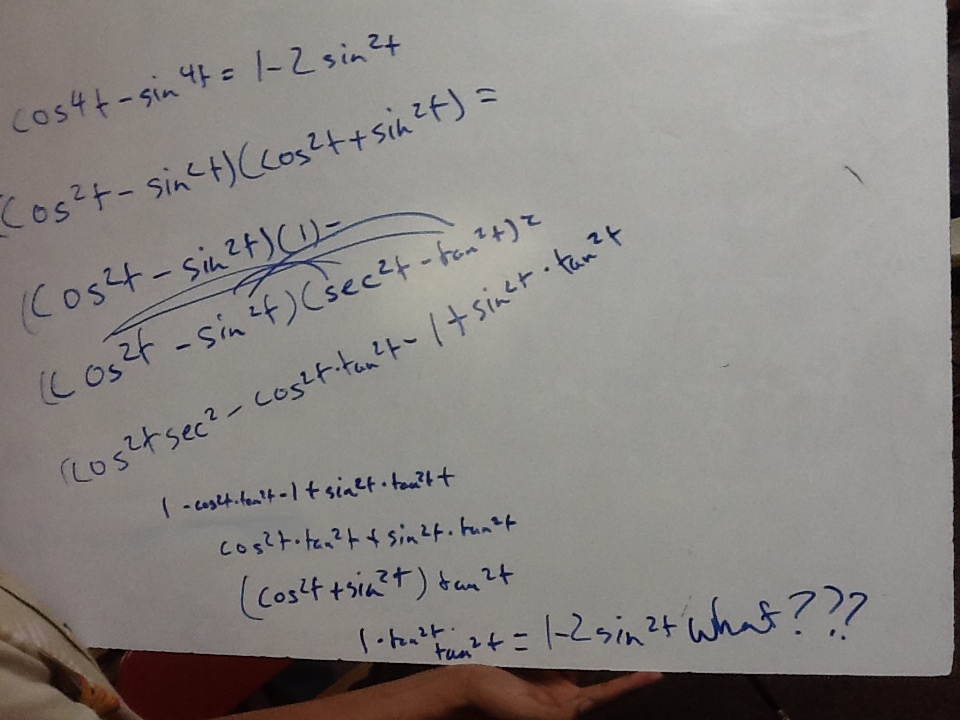 cos⁴t - sin⁴t = 1-2 sin²t
(cos²t - sin²t)(cos²t + sin²t) =
(cos²t - sin²t)(1) =
(cos²t - sin²t)(sec²t - tan²t) =
(cos²t sec² - cos²t·tan²t - 1 + sin²t·tan²t
1 - cos²t·tan²t - 1 + sin²t·tan²t +
cos²t·tan²t + sin²t·tan²t
(cos²t + sin²t) tan²t
1·tan²t·
tan²t = 1-2 sin²t what???